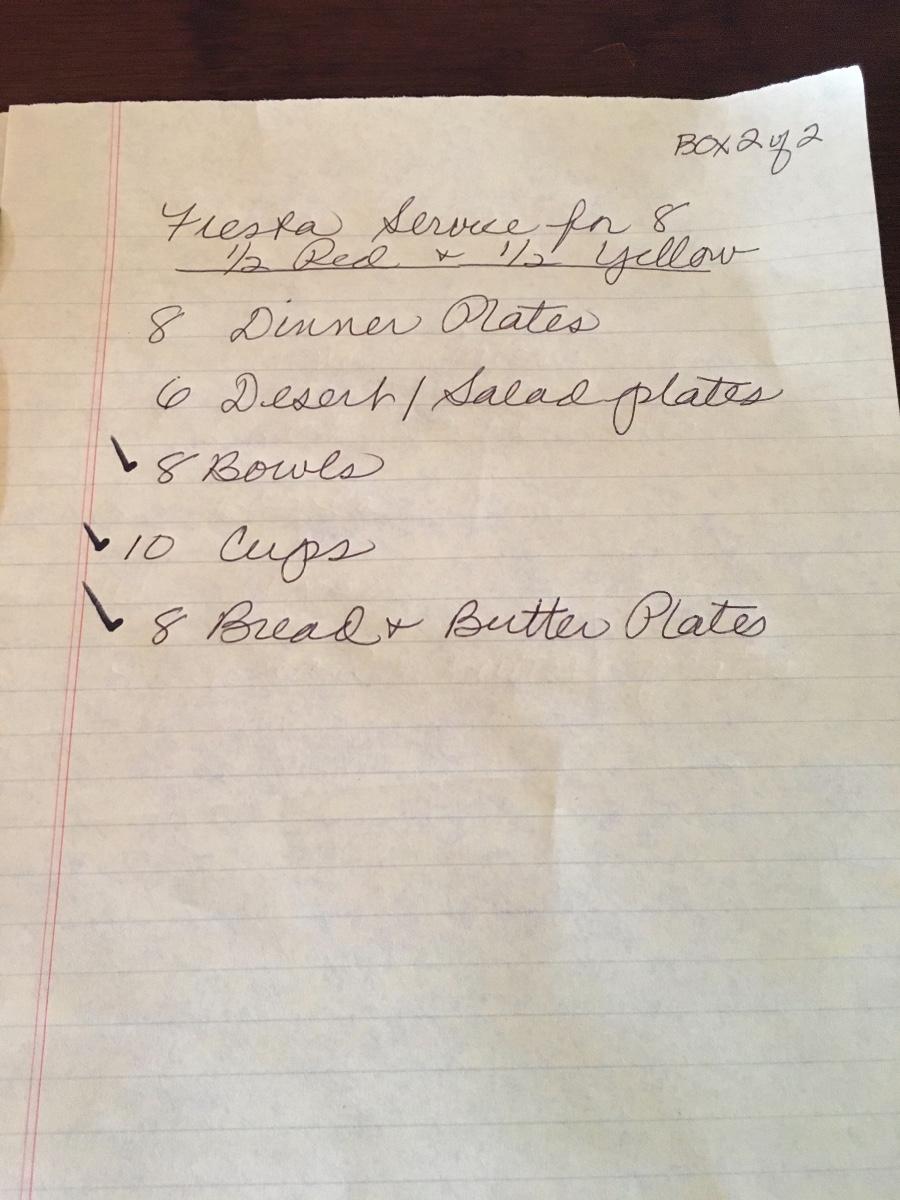 BOX 2 of 2
Fiesta Service for 8
1/2 Red & 1/2 Yellow
8 Dinner Plates
6 Desert / Salad plates
✓ 8 Bowls
✓ 10 Cups
✓ 8 Bread & Butter Plates